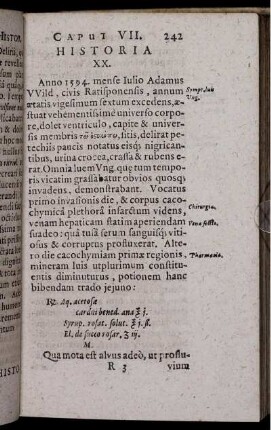 CAPUT VII. 242
HISTORIA
XX.
Anno 1594. mense Iulio Adamus
VVild, civis Ratisponensis, annum
ætatis vigesimum sextum excedens, æ-
stuat vehementissime universo corpo-
re, dolet ventriculo, capite & univer-
sis membris sitit, delirat pe-
techiis paucis notatus eisq; nigrican-
tibus, urina crocea, crassa & rubens e-
rat. Omnia luem Vng. quę tum tempo-
ris vicatim grassabatur obvios quosq;
invadens, demonstrabant. Vocatus
primo invasionis die, & corpus caco-
chymicâ plethorâ infarctum videns,
venam hepaticam statim aperiendam
suadeo: quâ tusâ serum sanguisq; viti-
osus & corruptus profluxerat. Alte-
ro die cacochymiam primæ regionis,
mineram luis utplurimum constitu-
entis diminuturus, potionem hanc
bibendam trado jejuno:
℞. Aq. acetosæ
cardui bened. ana ℥ j.
Syrup. rosat. solut. ℥ j. ß.
El. de succo rosar. ʒ iij.
M.
Qua mota est alvus adeò, ut proflu-
R 3 vium
Sympt. luis
Vng.
Chirurgia.
Vena secta.
Pharmacia.